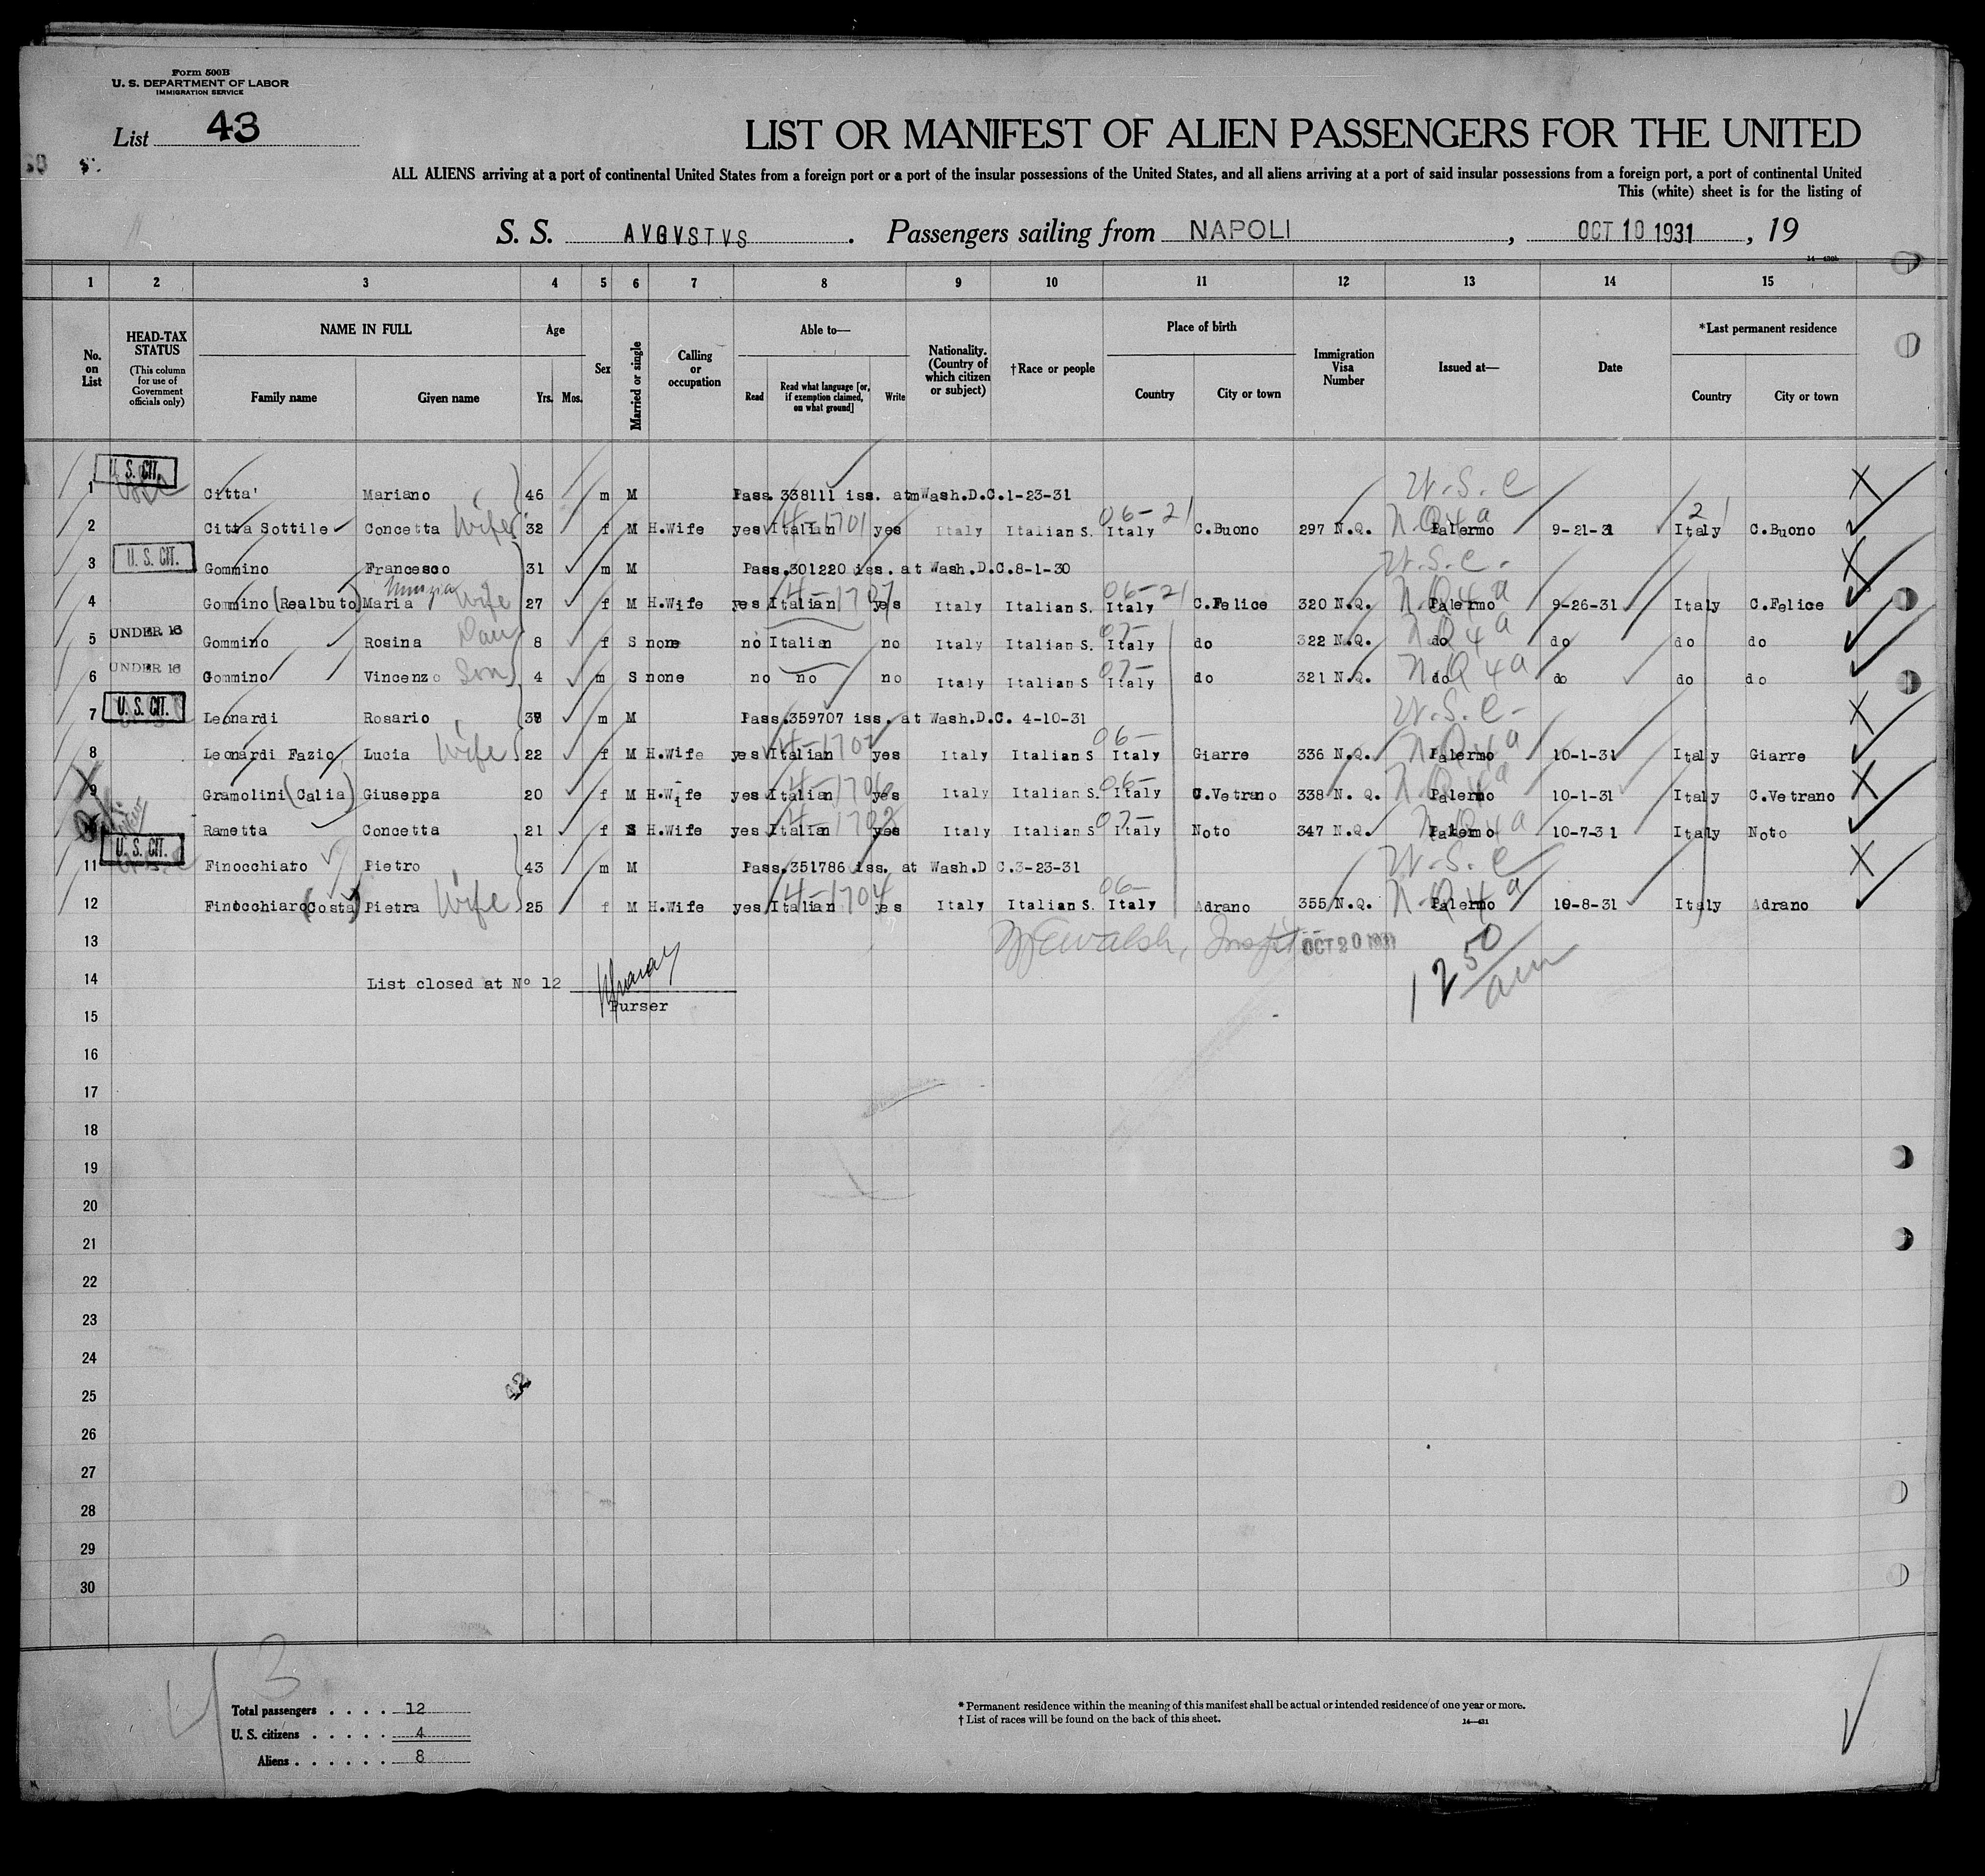 Form 500B
U. S. DEPARTMENT OF LABOR
IMMIGRATION SERVICE
List 43
LIST OR MANIFEST OF ALIEN PASSENGERS FOR THE UNITED
ALL ALIENS arriving at a port of continental United States from a foreign port or a port of the insular possessions of the United States, and all aliens arriving at a port of said insular possessions from a foreign port, a port of continental United
This (white) sheet is for the listing of
S. S. AVGVSTVS. Passengers sailing from NAPOLI, OCT 10 1931, 19
1 2 3 4 5 6 7 8 9 10 11 12 13 14 15
No. on List
HEAD-TAX STATUS
(This column for use of Government officials only)
NAME IN FULL
Family name Given name
Age
Yrs. Mos.
Sex
Married or single
Calling or occupation
Able to—
Read
Read what language [or, if exemption claimed, on what ground]
Write
Nationality. (Country of which citizen or subject)
†Race or people
Place of birth
Country City or town
Immigration Visa Number
Issued at—
Date
*Last permanent residence
Country City or town
U. S. CIT.
1 Citta' Mariano 46 m M Pass. 338111 iss. at Wash.D.C.1-23-31 U.S.C X
2 Citta Sottile Concetta Wife 32 f M H.Wife yes Italian 4-1701 yes Italy Italian S. 06-21 Italy C.Buono 297 N.Q. Palermo N.Q4a 9-21-31 Italy C.Buono
U. S. CIT.
3 Gommino Francesco 31 m M Pass.301220 iss. at Wash.D.C.8-1-30 U.S.C. X
4 Gommino (Realbuto) Maria Nunzia Wife 27 f M H.Wife yes Italian yes Italy Italian S. 06-21 Italy C.Felice 320 N.Q. Palermo N.Q4a 9-26-31 Italy C.Felice
UNDER 16
5 Gommino Rosina Dau 8 f S none no Italian no Italy Italian S. 07- Italy do 322 N.Q. do N.Q4a do do do
UNDER 16
6 Gommino Vincenzo Son 4 m S none no no no Italy Italian S 07- Italy do 321 N.Q. do N.Q4a do do do
U. S. CIT.
7 Leonardi Rosario m M Pass.359707 iss. at Wash.D.C. 4-10-31 U.S.C- X
8 Leonardi Fazio Lucia Wife 22 f M H.Wife yes Italian yes Italy Italian S 06- Italy Giarre 336 N.Q. Palermo N.Q4a 10-1-31 Italy Giarre
X 9 Gramolini (Calia) Giuseppa 20 f M H.Wife yes Italian 4-1706 yes Italy Italian S. 06- Italy C.Vetrano 338 N. Q. Palermo N.Q4a 10-1-31 Italy C.Vetrano X
Rametta Concetta 21 f S H.Wife yes Italian yes Italy Italian S 07- Italy Noto 347 N.Q. Palermo N.Q4a 10-7-31 Italy Noto
U. S. CIT.
11 Finocchiaro Pietro 43 m M Pass.351786 iss. at Wash.D C.3-23-31 U.S.C X
12 Finocchiaro (Costa) Pietra Wife 25 f M H.Wife yes Italian 4-1704 yes Italy Italian S. 06- Italy Adrano 355 N.Q. Palermo N.Q4a 10-8-31 Italy Adrano
13 OCT 20 1931 12 50 am
14 List closed at Nº 12
Purser
15
16
17
18
19
20
21
22
23
24
25
26
27
28
29
30
3
Total passengers . . . . 12
U. S. citizens . . . . . 4
Aliens . . . . . . 8
* Permanent residence within the meaning of this manifest shall be actual or intended residence of one year or more.
† List of races will be found on the back of this sheet.
14—431